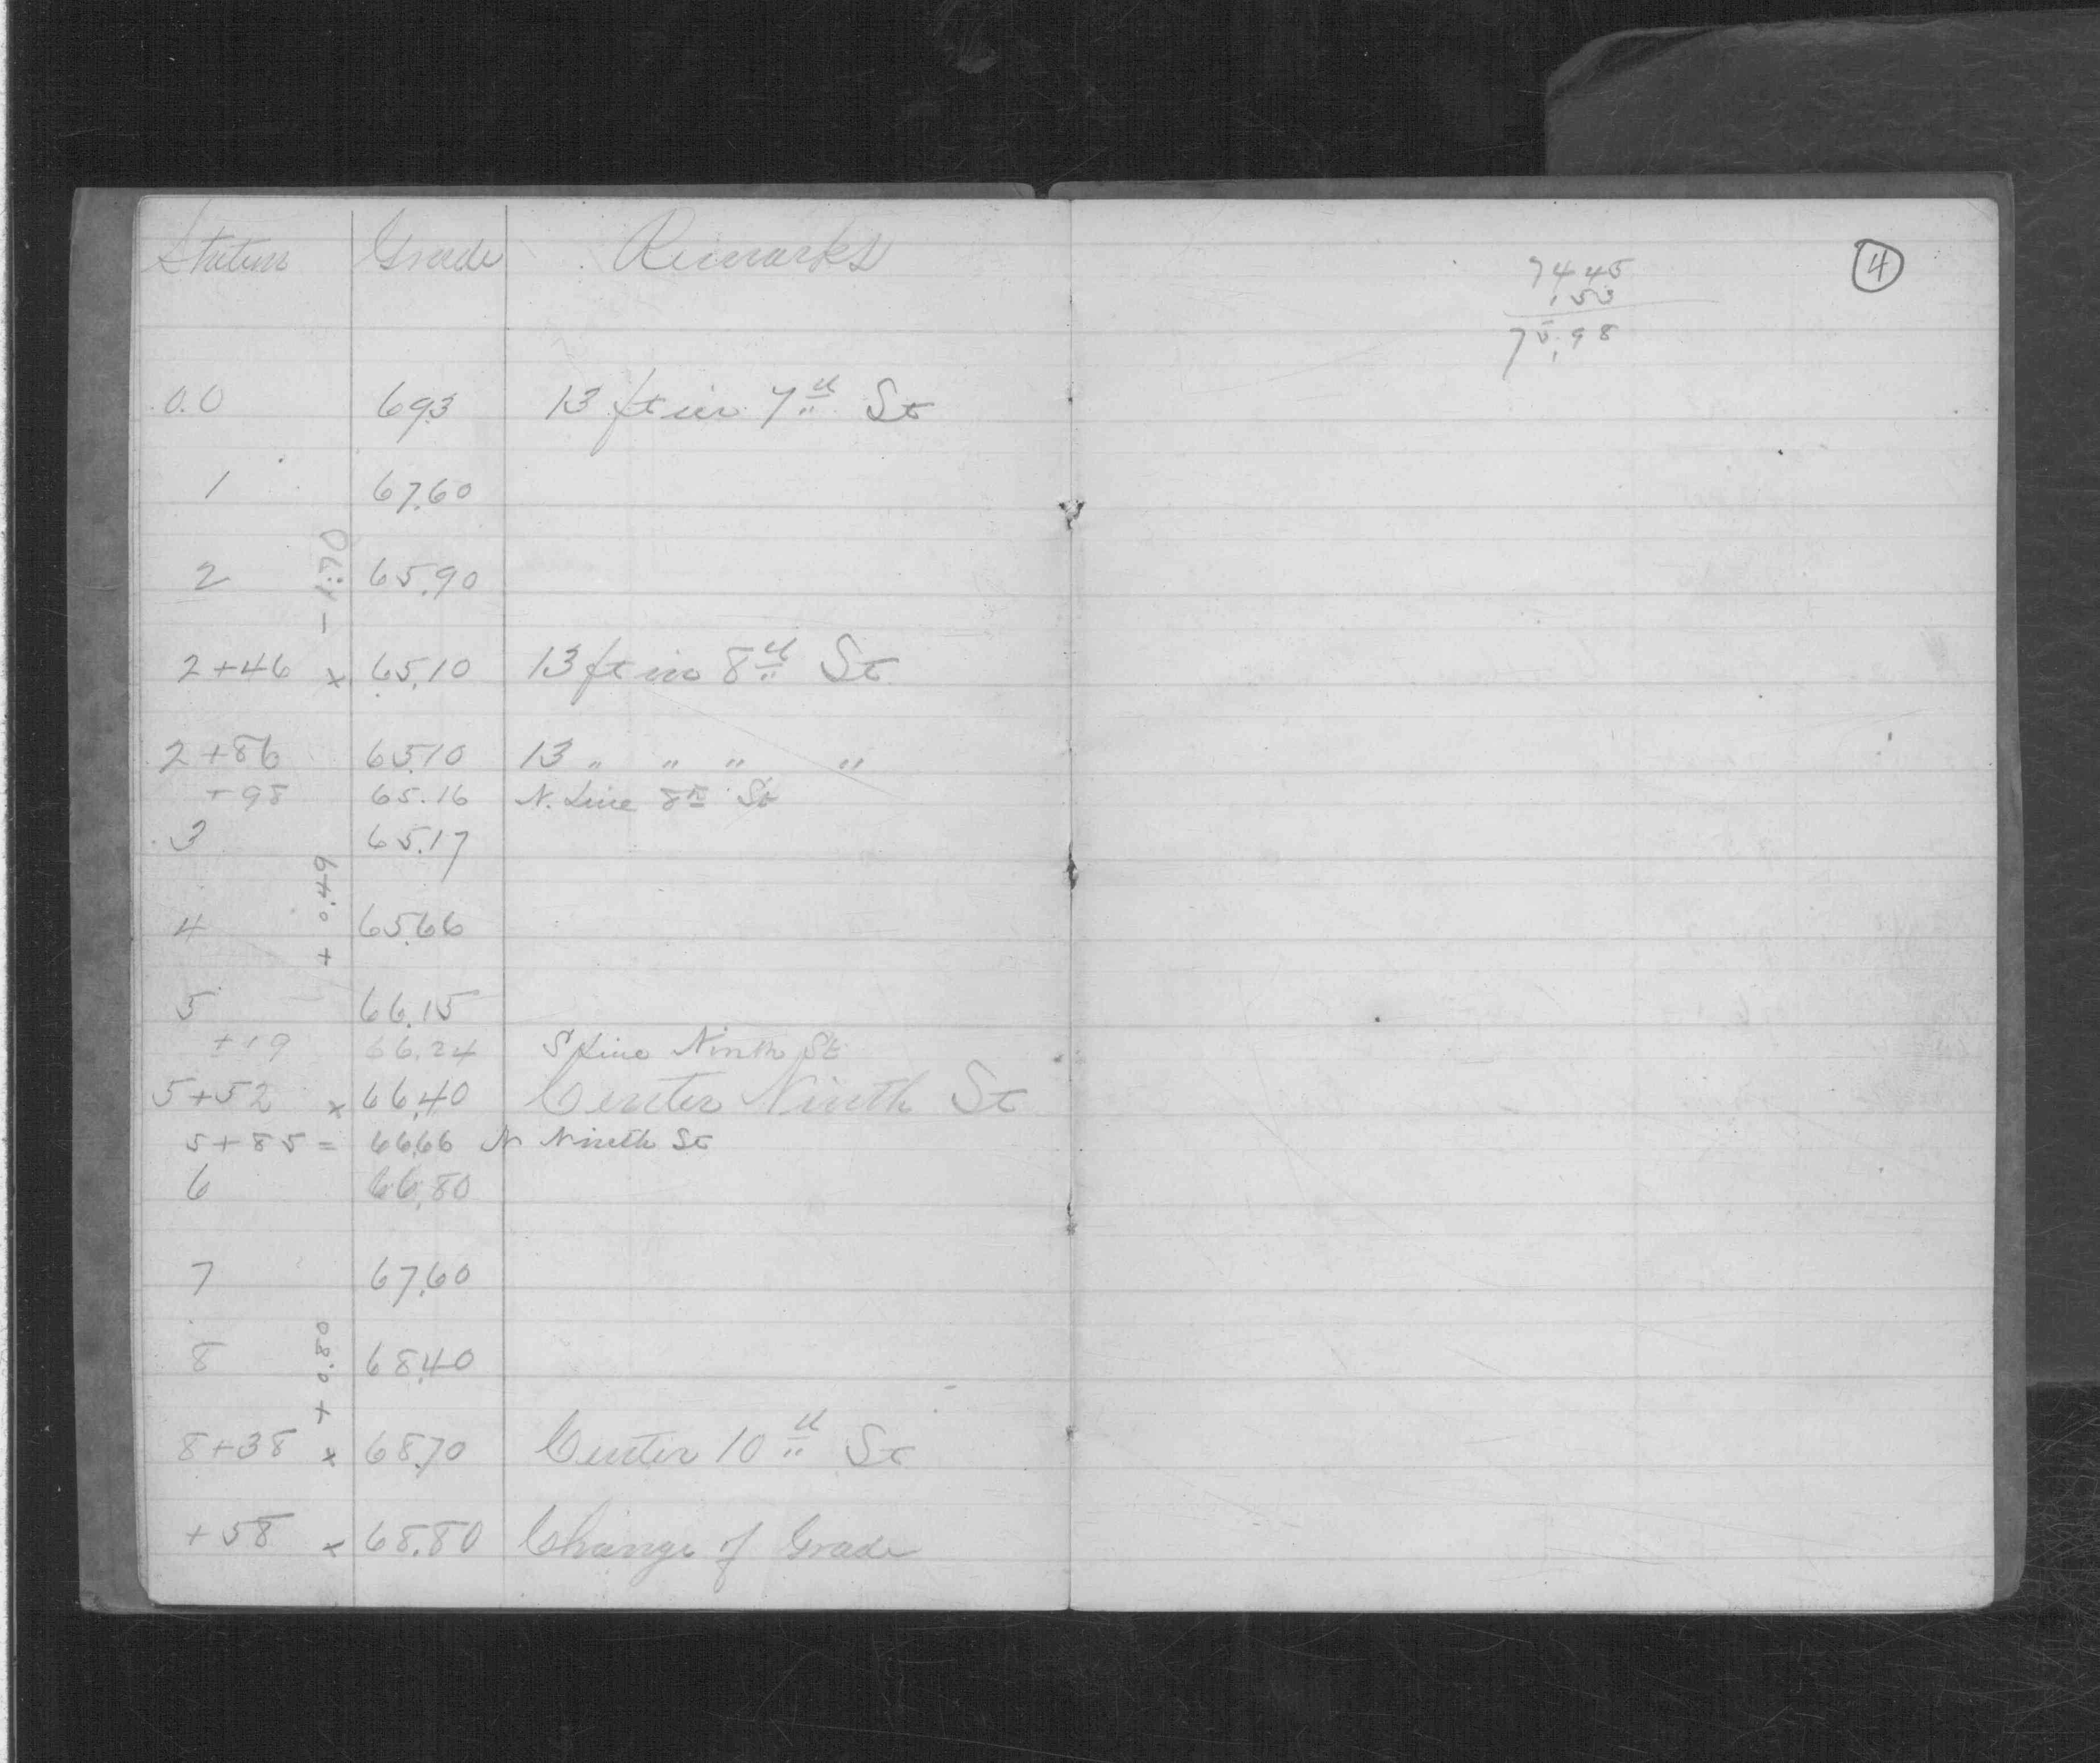 Station Grade Remarks
0.0 69.3 13 ft in 7th St
1 67.60
- 1.70
2 65.90
2+46 x 65.10 13 ft in 8th St
2+86 65.10 13 " " " "
+98 65.16 N. Line 8th St
3 65.17
+ 0.49
4 65.66
5 66.15
+19 66.24 S Line Ninth St
5+52 x 66.40 Center Ninth St
5+85 = 66.66 N Ninth St
6 66.80
7 67.60
+ 0.80
8 68.40
8+38 x 68.70 Center 10th St
+58 x 68.80 Change of Grade
4
74 45
1.53
75.98